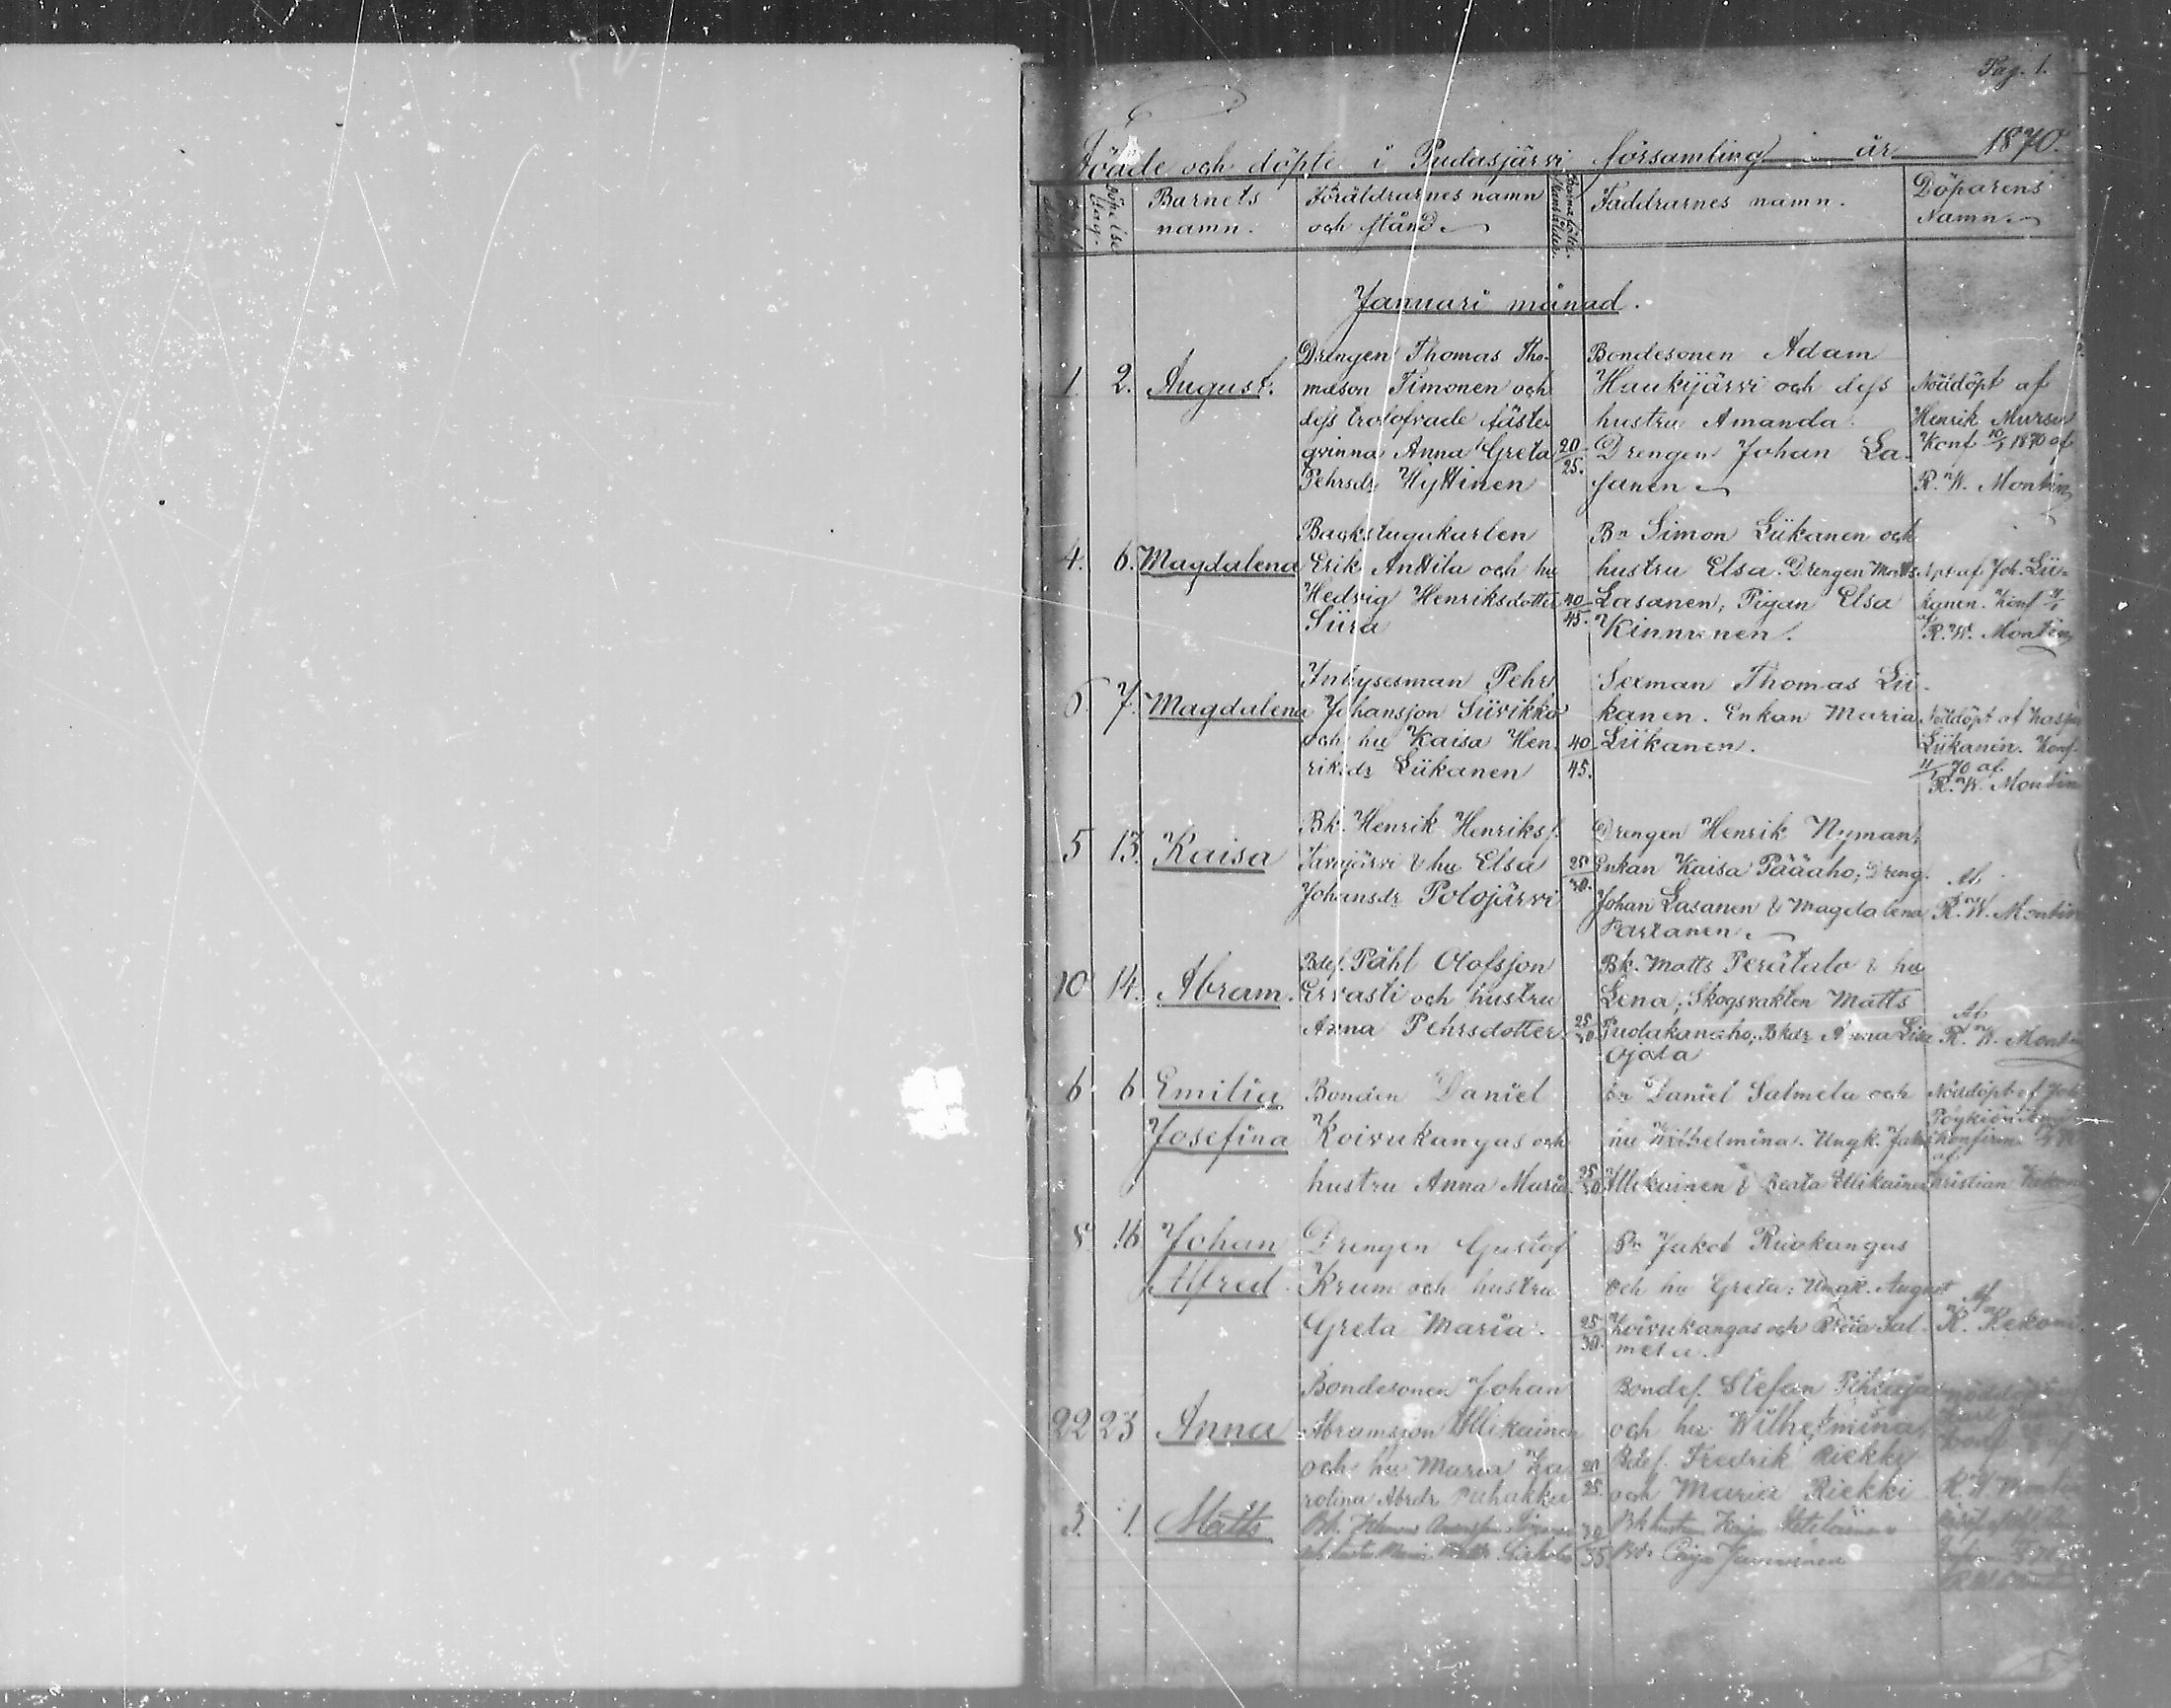 Pag. 1.
Födde och döpte i Pudasjärvi församling år 1870.
Döpelse dag. Barnets namn. Föräldrarnes namn och stånd. Faddrarnes namn. Döparens Namn.
Januari månad.
1. 2. August.
Drengen Thomas Tho-
masson Timonen och
dess trolofvade fäste-
qvinna Anna Greta
Pehrsdr Hyttinen
20/25.
Bondesonen Adam
Haukijärvi och dess
hustru Amanda.
Drengen Johan La-
sanen
Nöddöpt af
Henrik Mursu
Konf 10/1 1870 af
R. W. Montin
4. 6. Magdalena
Backstugukarlen
Erik Anttila och hu
Hedvig Henriksdotter
Siira
40/45.
Bn Simon Liikanen och
hustru Elsa. Drengen Matts
Lasanen, Pigan Elsa
Kinnunen.
af Joh. Lii-
kanen. Konf
af R. W. Montin
6. 7. Magdalena
Inhysesman Pehr
Johansson Siivikko
och hu Kaisa Hen-
riksdr Liikanen
40/45.
Sexman Thomas Lii-
kanen. Enkan Maria
Liikanen.
Nöddöpt af
Liikanen. Konf
11/1 70 af
R. W. Montin
5 13. Kaisa
Bk. Henrik Henrikss.
& hu Elsa
Johansdr Polojärvi
25/30.
Drengen Henrik Nyman,
Enkan Kaisa Pääaho, Dreng.
Johan Lasanen & Magdalena
Partanen.
Af
R. W. Montin
10 14. Abram.
Bdes. Påhl Olofsson
Ervasti och hustru
Anna Pehrsdotter
25/30
Bk. Matts Perätalo & hu
Lena, Skogsvakten Matts
Puolakanaho, Bkdr Anna Lisa
Ojala
Af
R. W. Montin
6 6 Emilia
Josefina
Bonden Daniel
Koivukangas och
hustru Anna Maria.
25/30
Bn Daniel Salmela och
hu Wilhelmina. Ungk.
Illikainen & Beata Illikainen
Nöddöpt af Joh
konfirm
af
Christian
8 16 Johan
Alfred.
Drengen Gustaf
Krum och hustru
Greta Maria.
25/30.
Bn Jakob Riuokangas
och hu Greta; Ungk. August
Koivukangas och Sal-
mela.
Af
K. Kekoni.
22 23 Anna
Bondesonen Johan
Abramsson Illikainen
och hu Maria Ka-
rolina Abrdr Puhakka
20/25.
Bondes. Stefan
och hu Wilhelmina,
Bdes. Fredrik Riekki
och Maria Riekki
R. W. Montin
3. 1. Matts
30/35